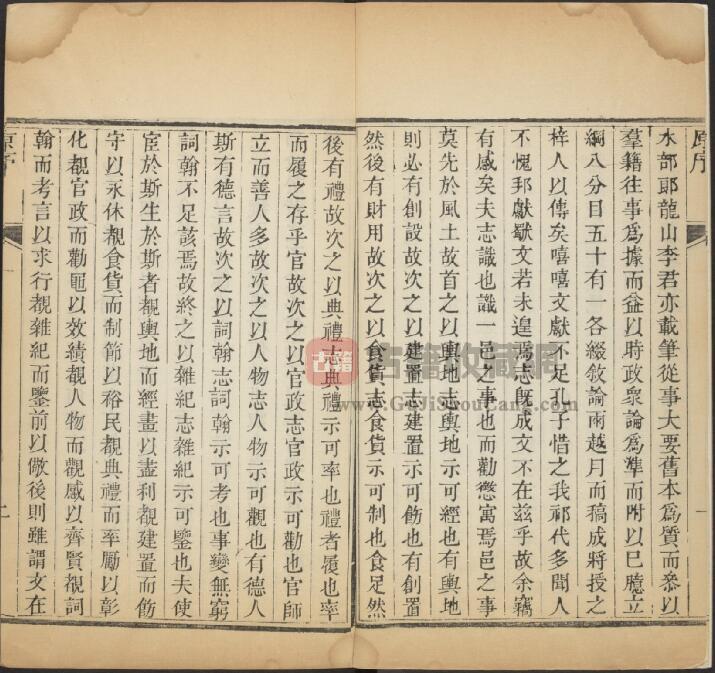 原序
水部郎龍山李君亦載筆從事大要舊本為質而叅以
羣籍往事爲據而益以時政衆論爲準而附以巳臆立
綱八分目五十有一各綴敘論兩越月而稿成將授之
梓人以傳矣嘻嘻文獻不足孔子惜之我祁代多聞人
不愧邦獻歇文若未遑焉志旣成文不在茲乎故余竊
有感矣夫志識也識一邑之事也而勸懲寓焉邑之事
莫先於風土故首之以輿地志輿地示可經也有輿地
則必有創設故次之以建置志建置示可飭也有創置
然後有財用故次之以食貨志食貨示可制也食足然
後有禮故次之以典禮志典禮示可率也禮者履也率
而履之存乎官故次之以官政志官政示可勸也官師
立而善人多故次之以人物志人物示可觀也有德人
斯有德言故次之以詞翰志詞翰示可考也事變無窮
詞翰不足該焉故終之以雜紀志雜紀示可鑒也夫使
宦於斯生於斯者觀輿地而經畫以盡利觀建置而飭
守以永休觀食貨而制節以裕民觀典禮而率勵以彰
化觀官政而勸黽以效績觀人物而觀感以齊賢觀詞
翰而考言以求行觀雜紀而鑒前以儆後則雖謂文在
原序
二
一
古籍
古籍收藏網
www.GuJiShouCang.com